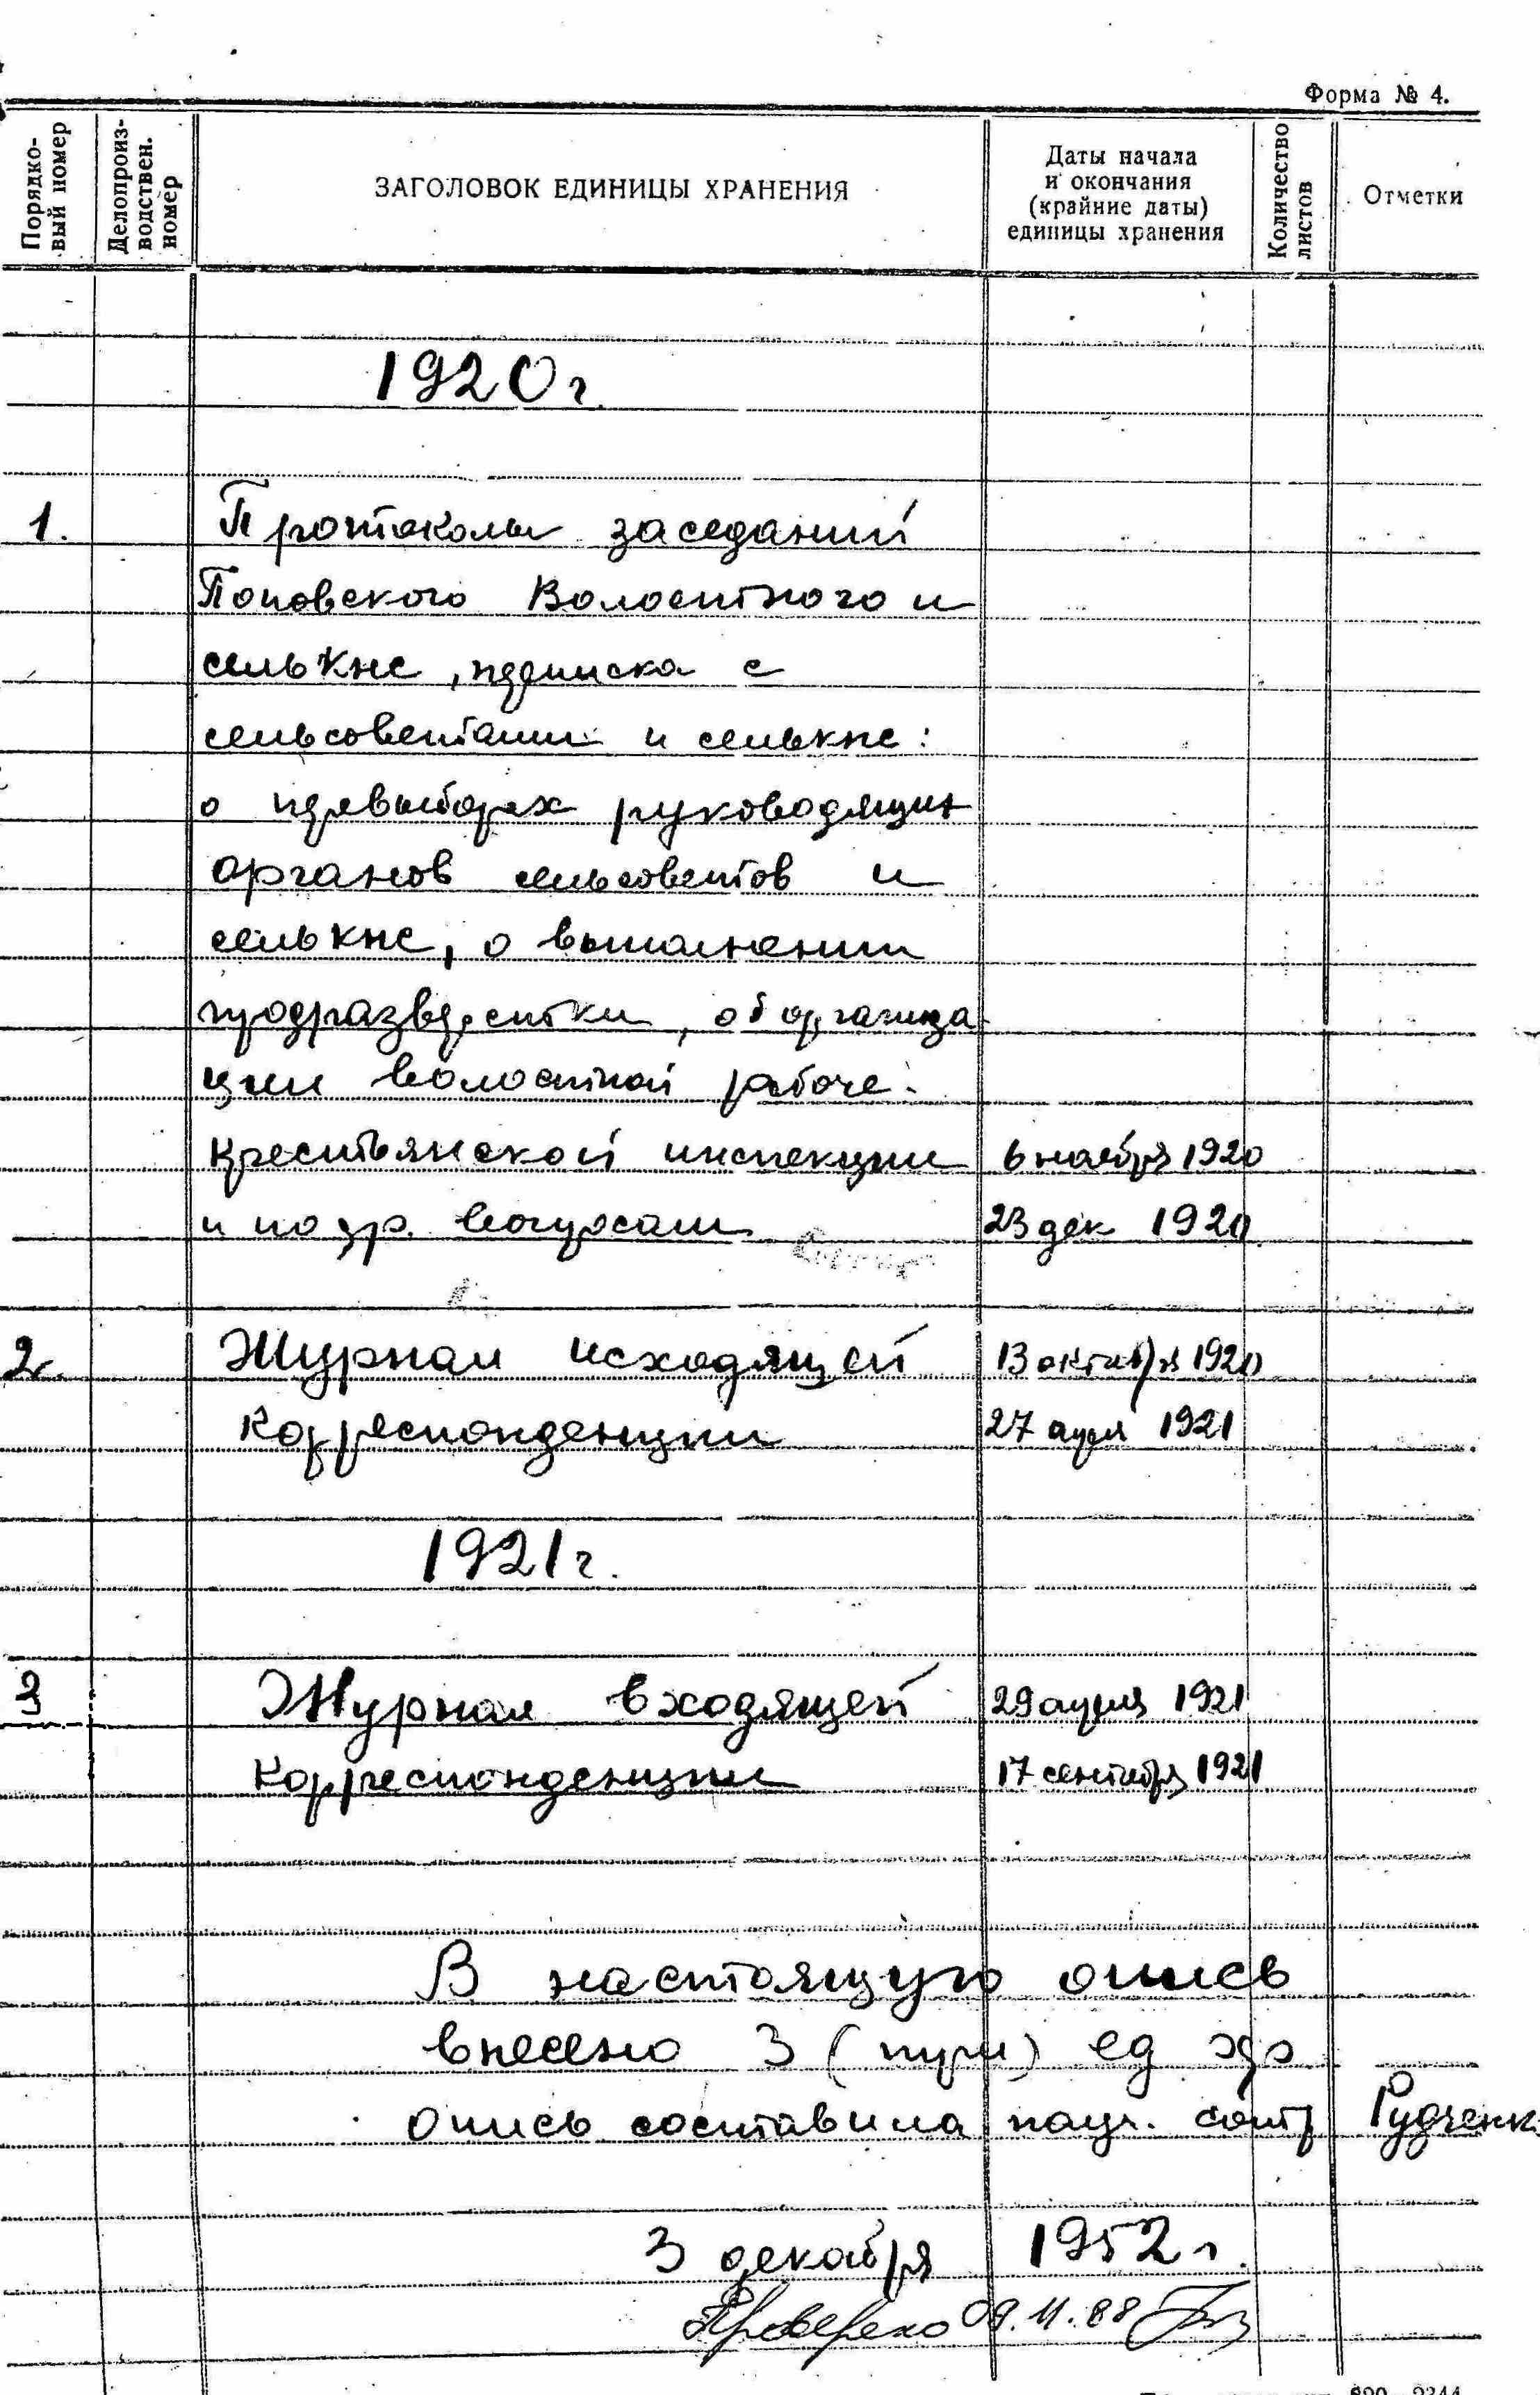 Форма № 4.
Порядко-
вый номер
Делопроиз-
водствен.
номер
ЗАГОЛОВОК ЕДИНИЦЫ ХРАНЕНИЯ
Даты начала
и окончания
(крайние даты)
единицы хранения
Количество
листов
Отметки
1920 г.
1. Протоколы заседаний
Поповского Волостного и
селькнс, переписка с
сельсоветами и селькнс:
о перевыборах руководящих
органов сельсоветов и
селькнс, о выполнении
продразверстки, об организа
ции волостной рабоче-
крестьянской инспекции 6 ноября 1920
и по др. вопросам 23 дек 1920
2. Журнал исходящей 13 октября 1920
корреспонденции 27 апреля 1921
1921 г.
3 Журнал входящей 29 апреля 1921
корреспонденции 17 сентября 1921
В настоящую опись
внесено 3 (три) ед хр
опись составила науч. сотр Рудченк
3 декабря 1952 г.
Проверено 09.11.88